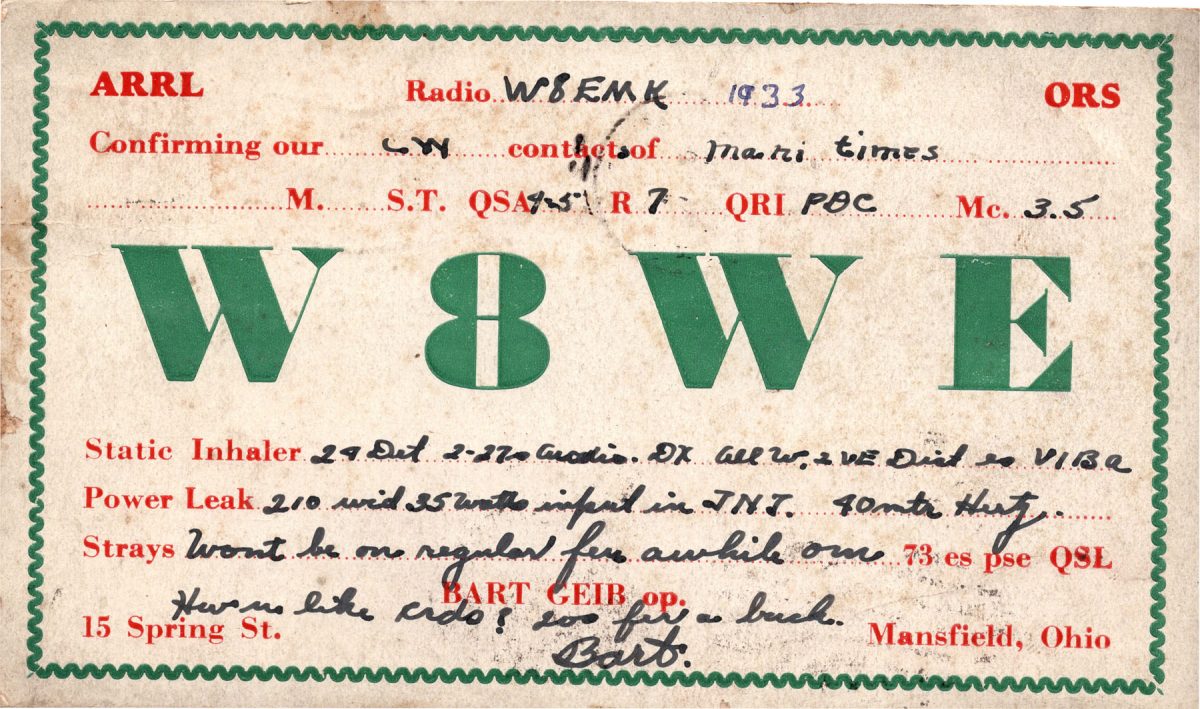 ARRL Radio W8EMK 1933 ORS
Confirming our CW contacts of mani times
M. S.T. QSA 4-5 R 7 QRI PDC Mc. 3.5
W8WE
Static Inhaler 24 Det 2-27s audio. DX all W, 2 VE Dist es V1Ba
Power Leak 210 wid 35 watts input in TNT. 40 mtr Hertz.
Strays Wont be on regular fer awhile om 73 es pse QSL
BART GEIB op.
Hw u like crds? 200 fer a buck.
15 Spring St. Mansfield, Ohio
Bart.